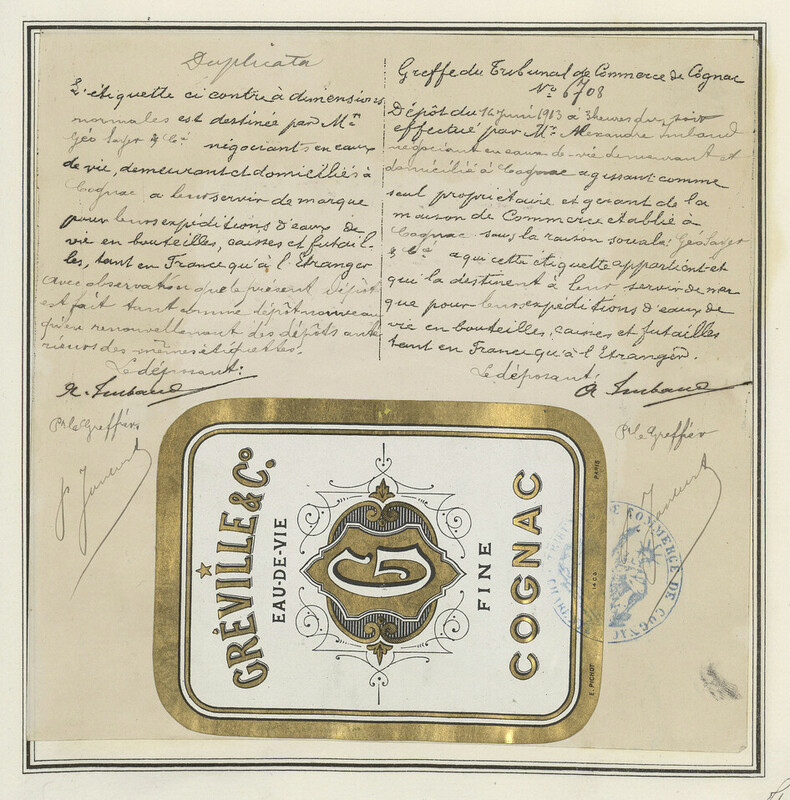 Duplicata
L'étiquette ci contre à dimensions
normales est destinée par Mrs
Géo Sayer & Cie négociants en eaux
de vie, demeurant et domiciliés à
Cognac a leur servir de marque
pour leurs expéditions d'eaux de
vie en bouteilles, caisses et futail-
les, tant en France qu'à l'Etranger
avec observation que le présent dépôt
est fait tant comme dépôt nouveau
qu'en renouvellement des dépôts anté
rieurs des mêmes étiquettes.
Le déposant:
A. Imbaud
Pr le Greffier
Greffe du Tribunal de Commerce de Cognac
No 6708
Dépôt du 12 Juin 1913 à 3 heures du soir
effectué par Mr Alexandre Imbaud
négociant en eaux-de-vie demeurant et
domicilié à Cognac agissant comme
seul propriétaire et gérant de la
maison de Commerce établie à
Cognac sous la raison sociale: Géo Sayer
& Cie a qui cette étiquette appartient et
qui la destinent à leur servir de mar
que pour leurs expéditions d'eaux de
vie en bouteilles, caisses et futailles
tant en France qu'à l'Etranger.
Le déposant:
A. Imbaud
Pr le Greffier
GRÉVILLE & Co.
EAU-DE-VIE
G
FINE
COGNAC
E. PICHOT
1400
PARIS
COMMERCE DE COGNAC